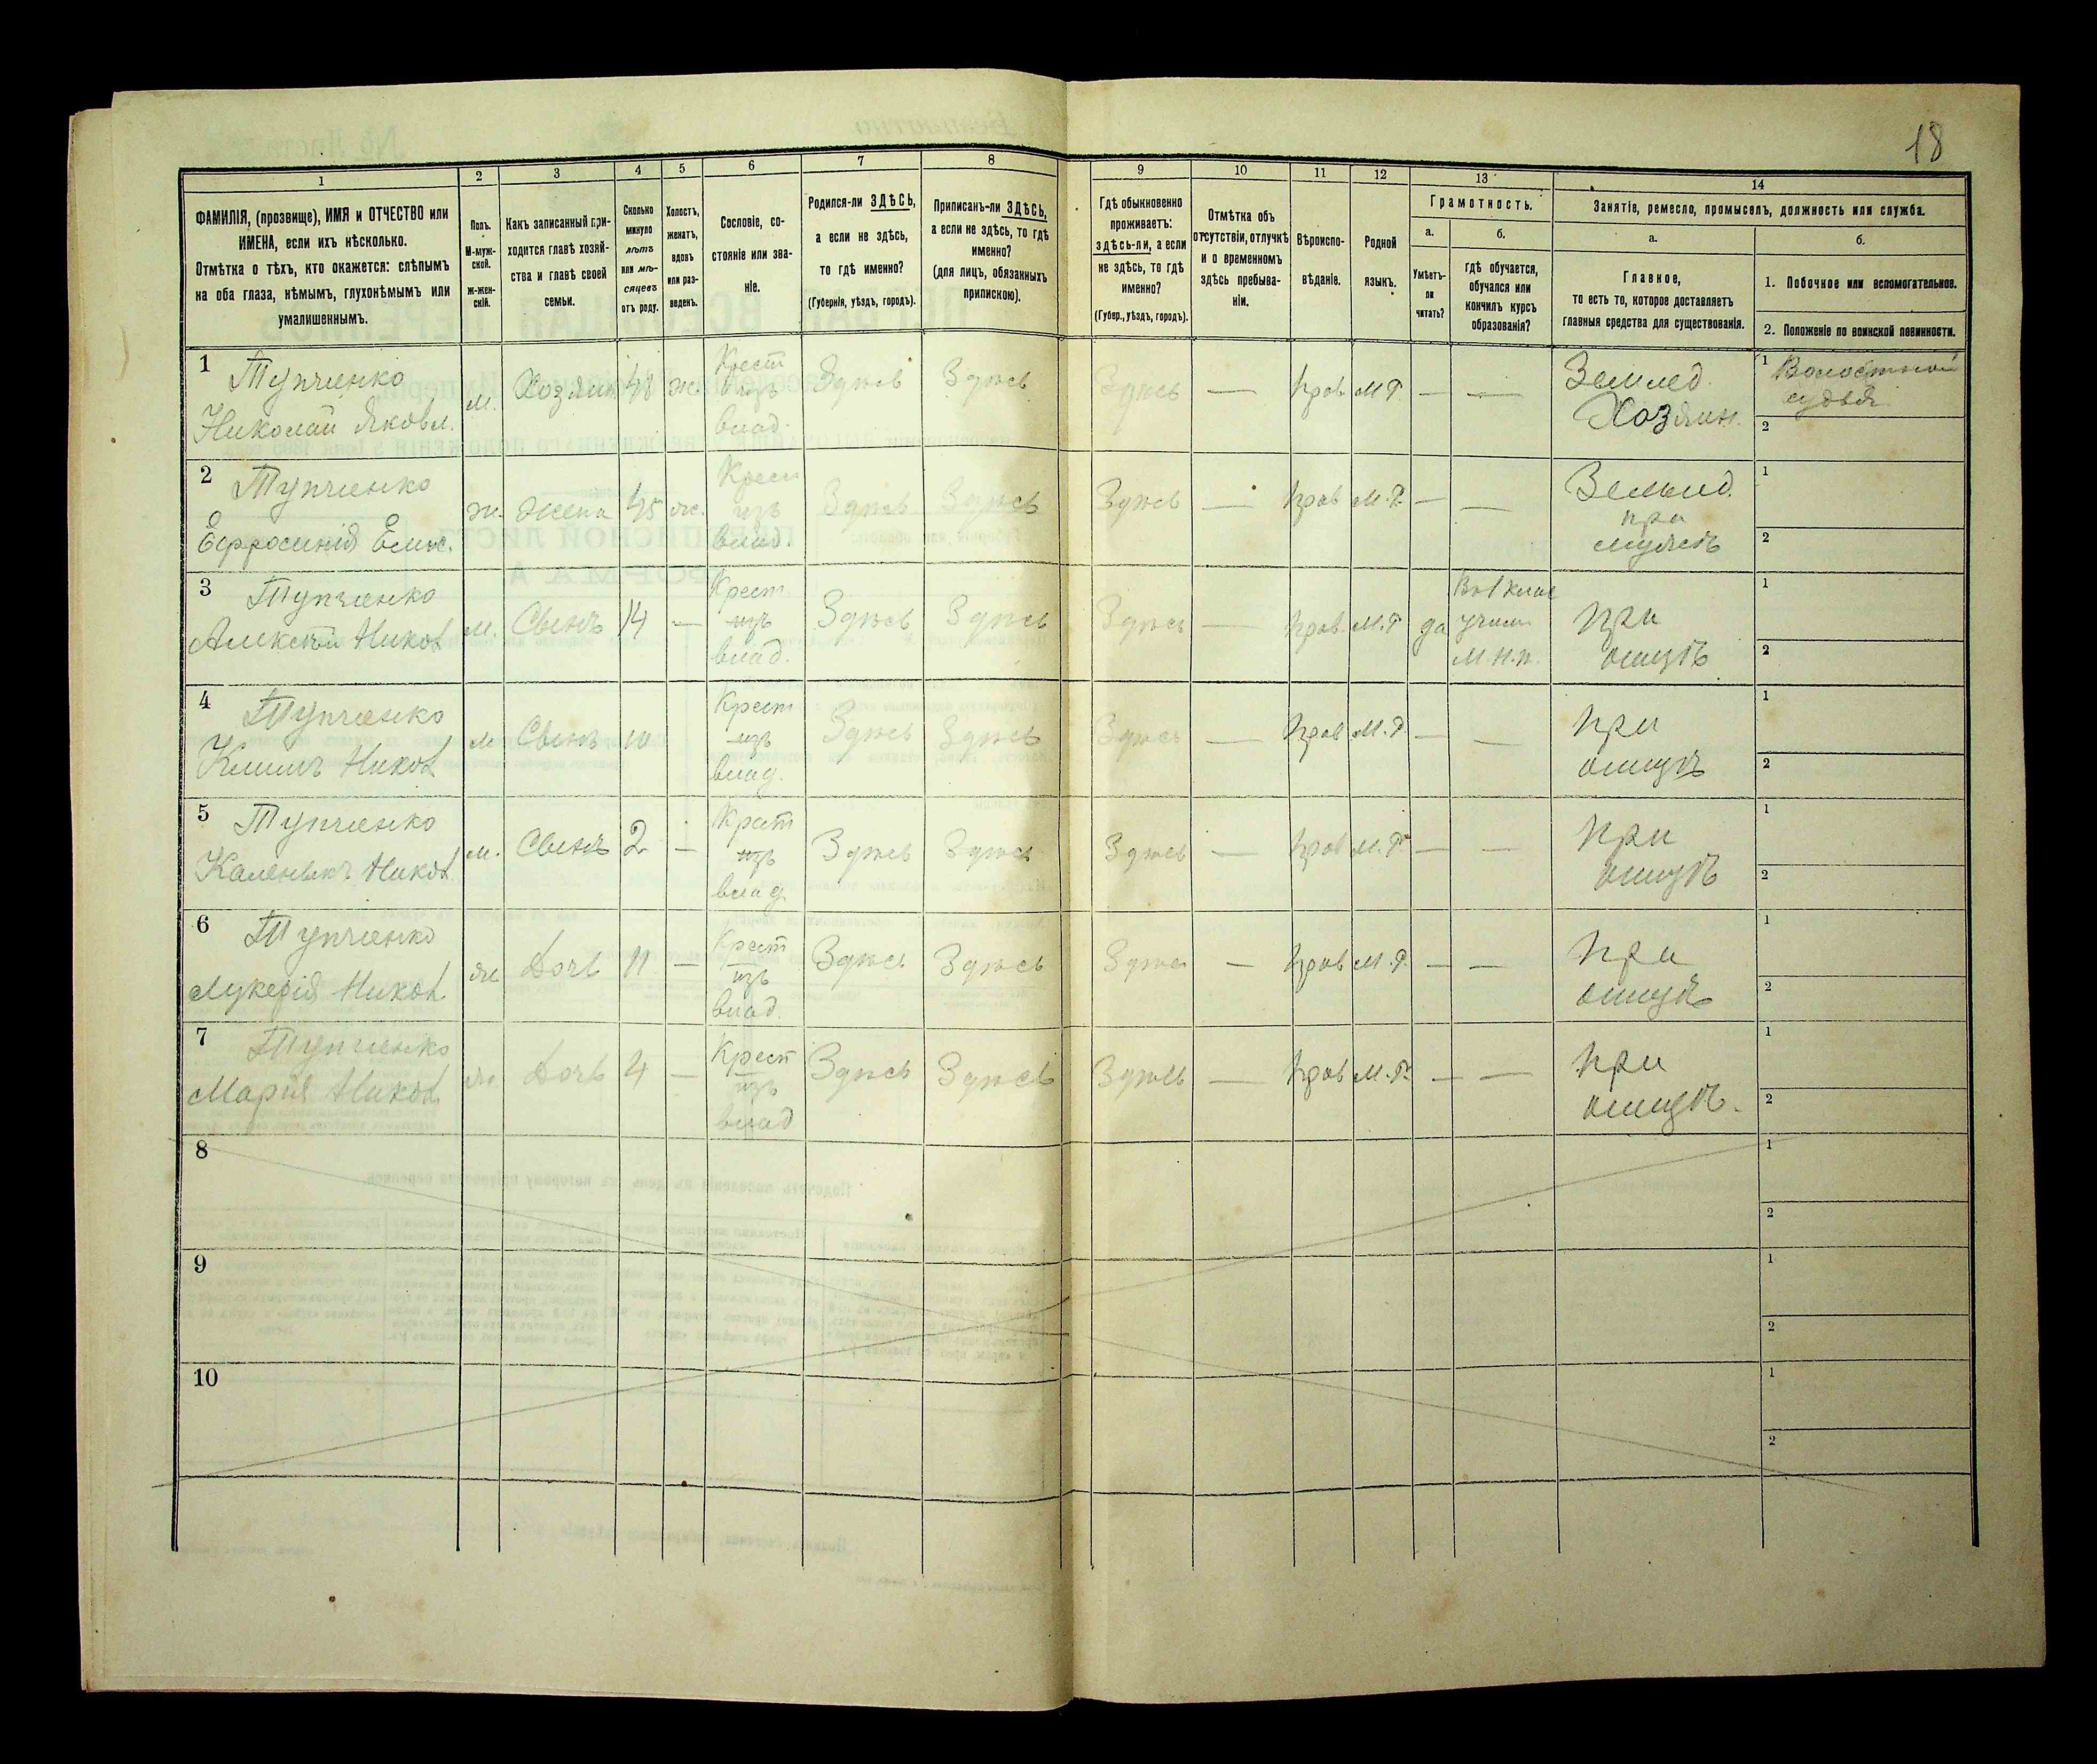 18
1
2
3
4
5
6
7
8
9
10
11
12
13
14
ФАМИЛІЯ, (прозвище), ИМЯ и ОТЧЕСТВО или
ИМЕНА, если ихъ нѣсколько.
Отмѣтка о тѣхъ, кто окажется: слѣпымъ
на оба глаза, нѣмымъ, глухонѣмымъ или
умалишеннымъ.
Полъ.
М-муж-
ской.
ж-жен-
скій.
Какъ записанный при-
ходится главѣ хозяй-
ства и главѣ своей
семьи.
Сколько
минуло
лѣтъ
или мѣ-
сяцевъ
отъ роду.
Холостъ,
женатъ,
вдовъ
или раз-
веденъ.
Сословіе, со-
стояніе или зва-
ніе.
Родился-ли ЗДѢСЬ,
а если не здѣсь,
то гдѣ именно?
(Губернія, уѣздъ, городъ).
Приписанъ-ли ЗДѢСЬ,
а если не здѣсь, то гдѣ
именно?
(для лицъ, обязанныхъ
припискою).
Гдѣ обыкновенно
проживаетъ:
здѣсь-ли, а если
не здѣсь, то гдѣ
именно?
(Губер., уѣздъ, городъ).
Отмѣтка объ
отсутствіи, отлучкѣ
и о временномъ
здѣсь пребыва-
ніи.
Вѣроиспо-
вѣданіе.
Родной
языкъ.
Грамотность.
а.
б.
Умѣетъ-
ли
читать?
гдѣ обучается,
обучался или
кончилъ курсъ
образованія?
Занятіе, ремесло, промыселъ, должность или служба.
а.
б.
Главное,
то есть то, которое доставляетъ
главныя средства для существованія.
1. Побочное или вспомогательное.
2. Положеніе по воинской повинности.
1
Тупченко
Николай Яковл.
м.
Хозяин
48
ж.
Крест
изъ
влад.
Здѣсь
Здѣсь
Здѣсь
—
Прав
М Р.
—
—
Землед.
Хозяин.
1 Волостной
судья
2
2
Тупченко
Ефросинія
ж.
Жена
45
ж.
Крест
изъ
влад.
Здѣсь
Здѣсь
Здѣсь
—
Прав
М. Р.
—
—
Землед.
при
мужѣ
1
2
3
Тупченко
Алексѣй Никол
м.
Сынъ
14
—
Крест
изъ
влад.
Здѣсь
Здѣсь
Здѣсь
—
Прав.
М. Р
да
учил
М. Н. П.
при
отцѣ
1
2
4
Тупченко
Климъ Никол
м
Сынъ
10
Крест
изъ
влад.
Здѣсь
Здѣсь
Здѣсь
—
Прав
М. Р
—
—
при
отцѣ
1
2
5
Тупченко
Каленикъ Никол
м.
Сынъ
2
—
Крест
изъ
влад
Здѣсь
Здѣсь
Здѣсь
—
Прав
М. Р.
—
—
при
отцѣ
1
2
6
Тупченко
Лукерія Никол
ж
Дочь
11
—
Крест
изъ
влад.
Здѣсь
Здѣсь
Здѣсь
—
Прав
М. Р.
—
—
при
отцѣ
1
2
7
Тупченко
Марія Никол
ж.
Дочь
4
—
Крест
изъ
влад
Здѣсь
Здѣсь
Здѣсь
—
Прав
М. Р.
—
—
при
отцѣ.
1
2
8
1
2
9
1
2
10
1
2